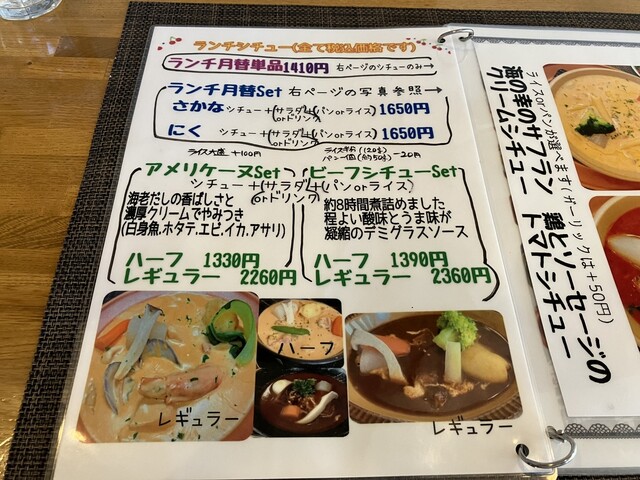 ランチシチュー(全て税込価格です)
ランチ月替単品1410円 右ページのシチューのみ→
ランチ月替Set 右ページの写真参照→
さかな シチュー+(サラダorドリンク)+(パンorライス) 1650円
にく シチュー+(サラダorドリンク)+(パンorライス) 1650円
ライス大盛 +100円
ライス半(120g) パン一個(約50g) -20円
アメリケーヌSet
ビーフシチューSet
シチュー+(サラダorドリンク)+(パンorライス)
海老だしの香ばしさと
濃厚クリームでやみつき
(白身魚,ホタテ,エビ,イカ,アサリ)
ハーフ 1330円
レギュラー 2260円
約8時間煮詰めました
程よい酸味とうま味が
凝縮のデミグラスソース
ハーフ 1390円
レギュラー 2360円
レギュラー
ハーフ
レギュラー
ライスorパンが選べます(ガーリックは+50円)
海の幸のサフラン
クリームシチュー
鶏とソーセージの
トマトシチュー